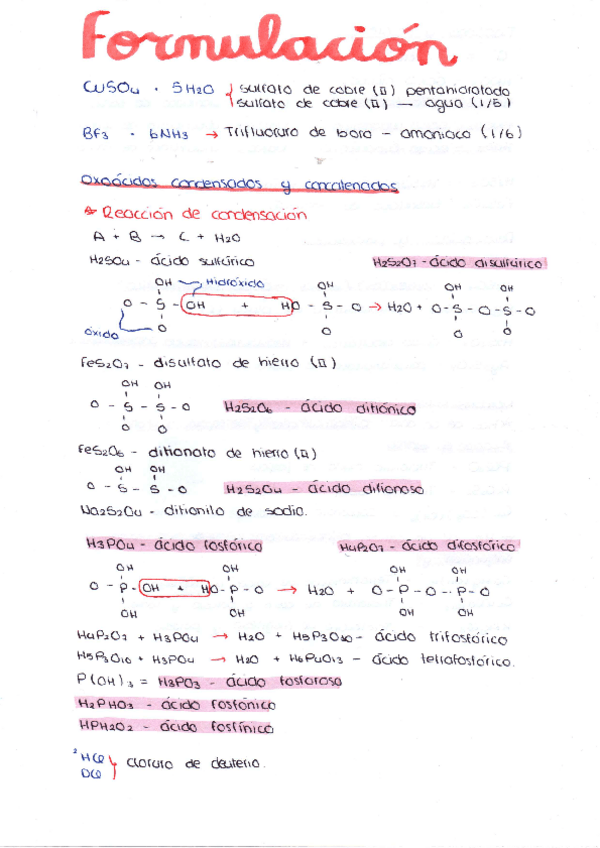 Formulación
CuSO4 · 5H2O { sulfato de cobre (II) pentahidratado
sulfato de cobre (II) — agua (1/5)
BF3 · 6NH3 → Trifluoruro de boro - amoniaco (1/6)
Oxoácidos condensados y concatenados
Reacción de condensación
A + B → C + H2O
H2SO4 - ácido sulfúrico H2S2O7 - ácido disulfúrico
OH Hidróxido OH OH OH
O - S - OH + HO - S - O → H2O + O - S - O - S - O
óxido O O O O
FeS2O7 - disulfato de hierro (II)
OH OH
O - S - S - O H2S2O6 - ácido ditiónico
O O
FeS2O6 - ditionato de hierro (II)
OH OH
O - S - S - O H2S2O4 - ácido ditionoso
Na2S2O4 - ditionito de sodio.
H3PO4 - ácido fosfórico H4P2O7 - ácido difosfórico
OH OH OH OH
O - P - OH + HO - P - O → H2O + O - P - O - P - O
OH OH OH OH
H4P2O7 + H3PO4 → H2O + H5P3O10 - ácido trifosfórico
H5P3O10 + H3PO4 → H2O + H6P4O13 - ácido tetrafosfórico.
P(OH)3 = H3PO3 - ácido fosforoso
H2PHO3 - ácido fosfónico
HPH2O2 - ácido fosfínico
2HCl } cloruro de deuterio.
DCl